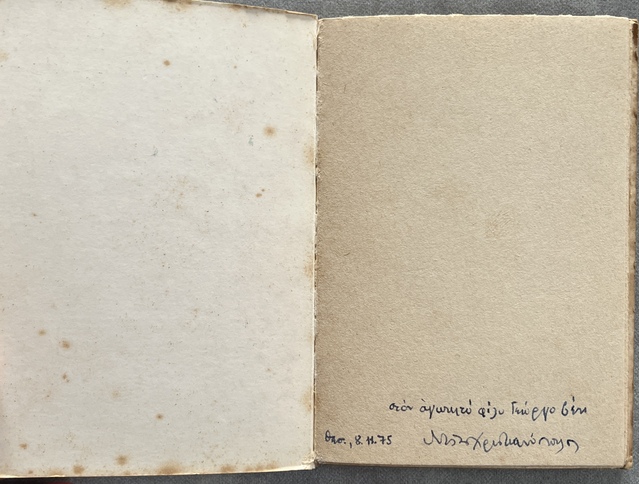 στὸν ἀγαπητὸ φίλο Γιῶργο
Θεσ., 8.11.75 Ντίνος Χριστιανόπουλος